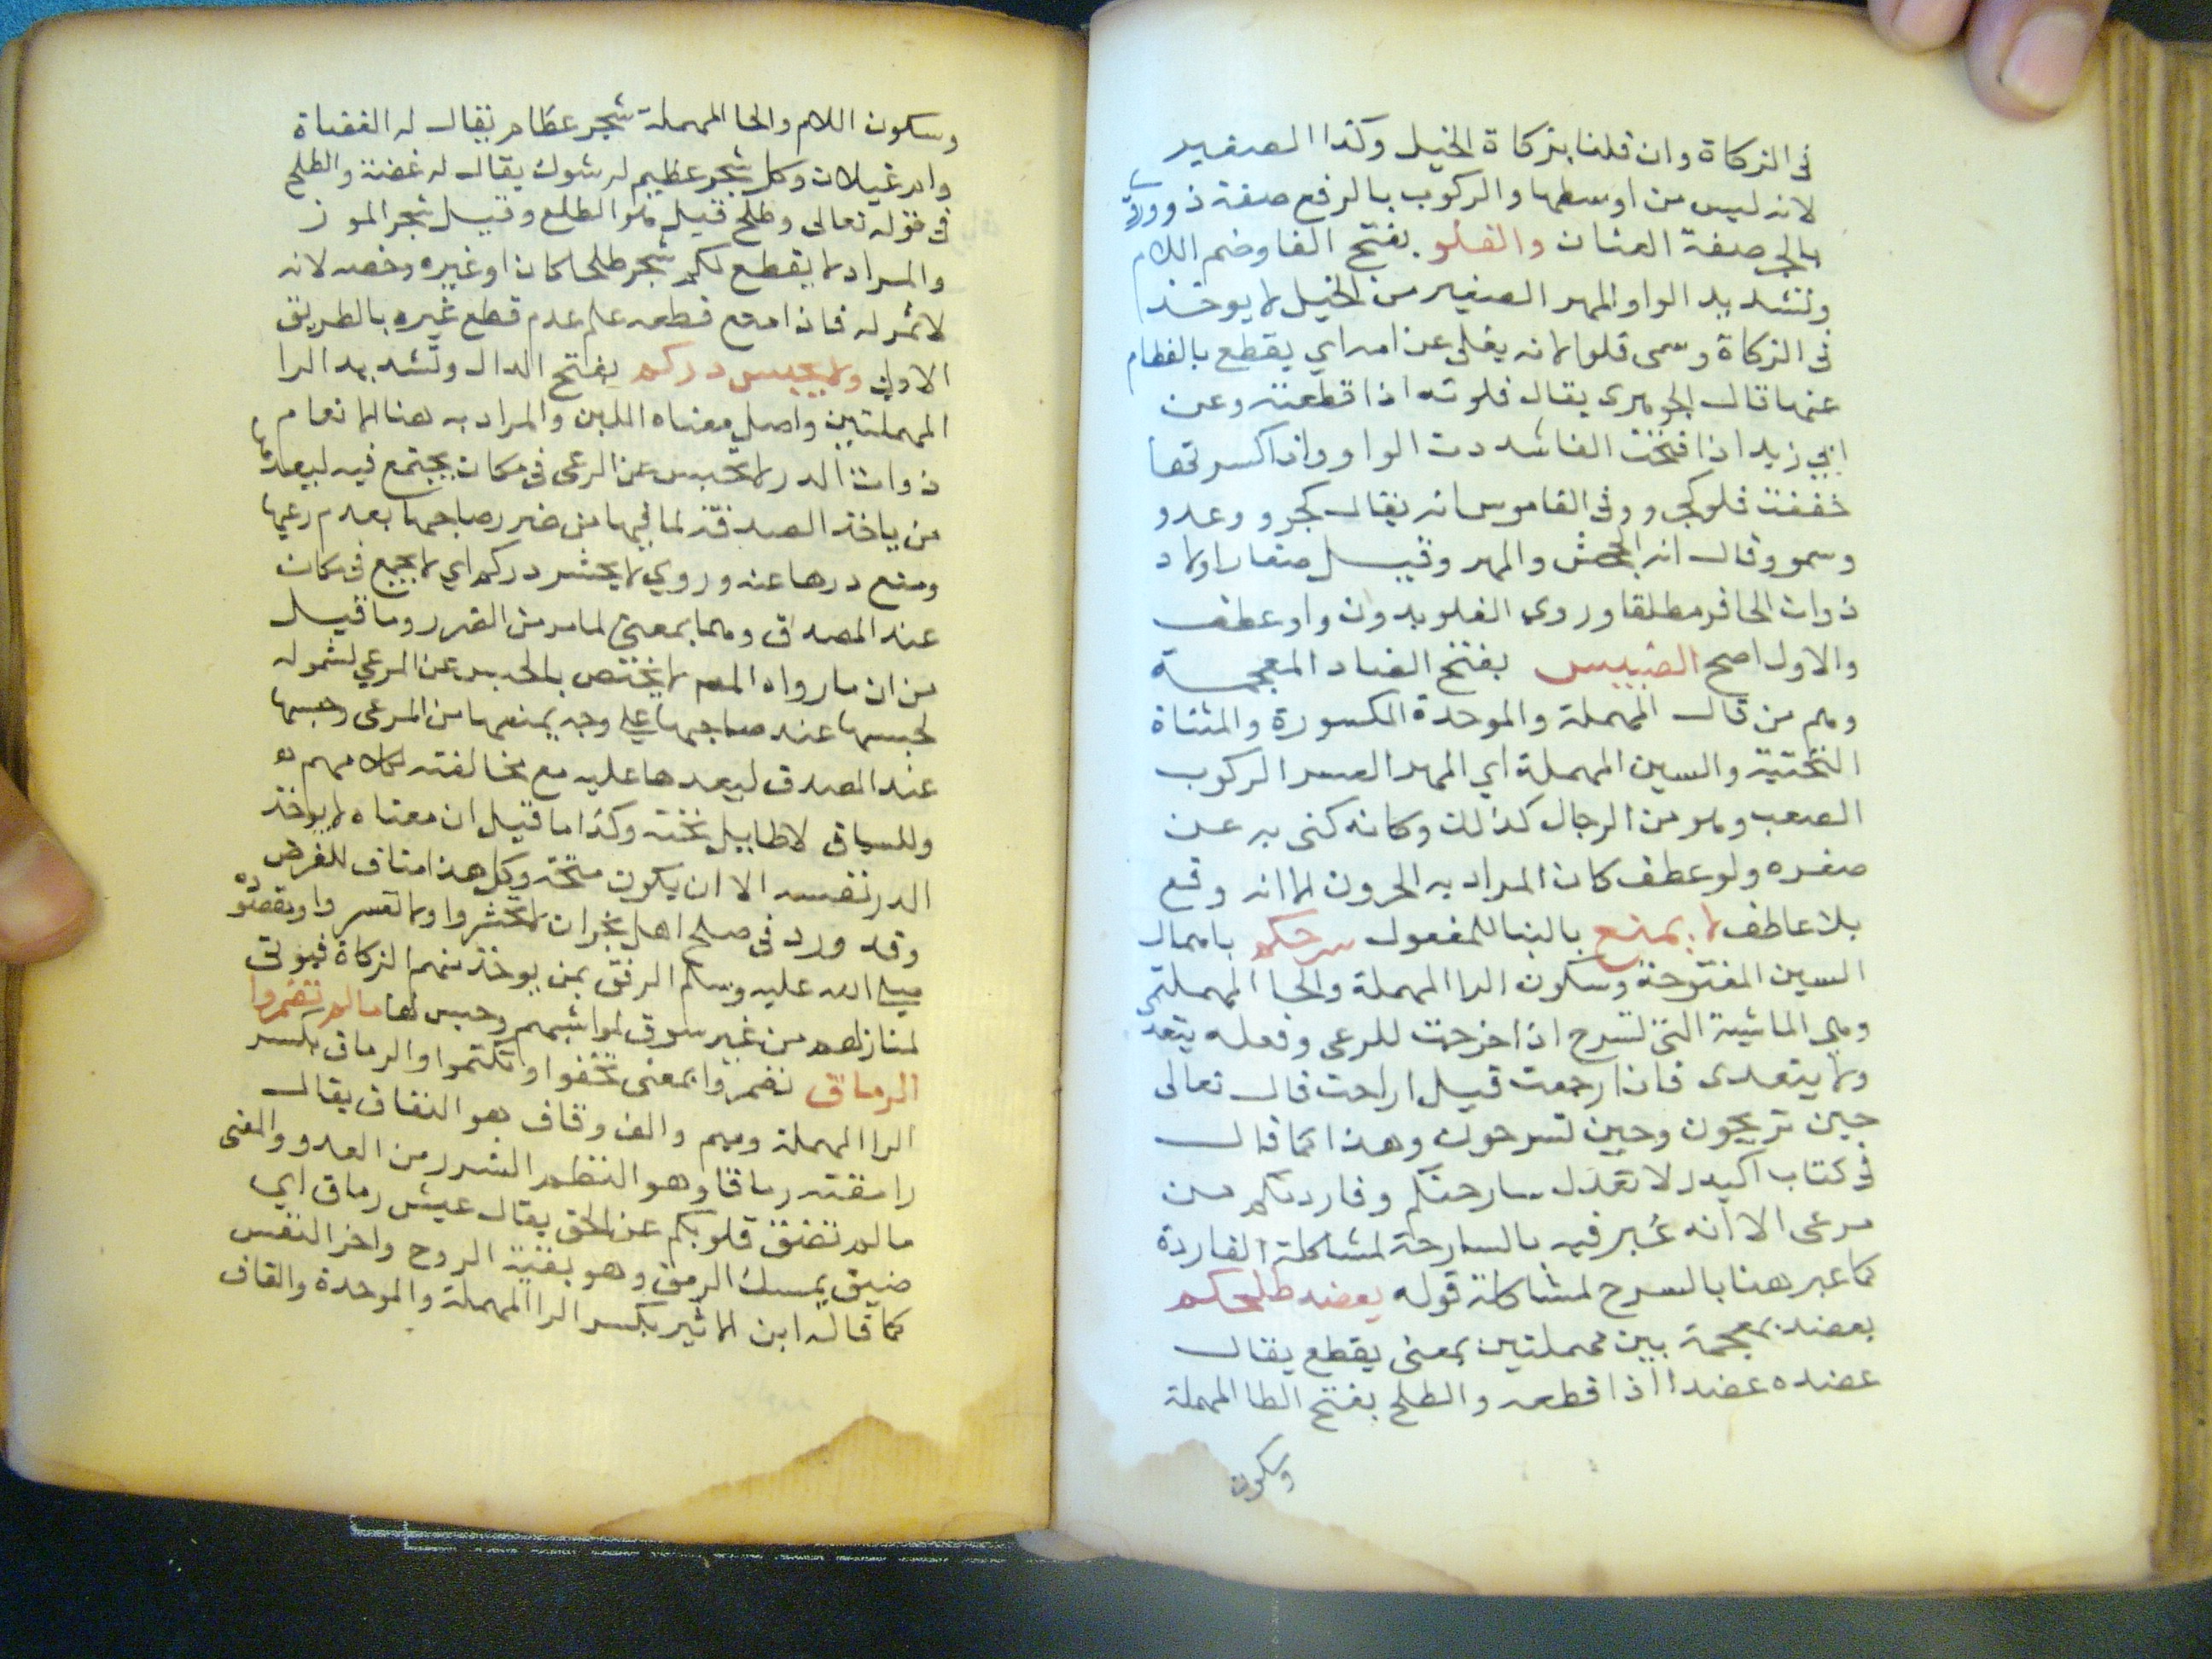 في الزكاة وان قلنا بزكاة الخيل وكذا الصغير
لانه ليس من اوسطها والركوب بالرفع صفة ذو وروي
بالجر صفة العنان والفلو بفتح الفا وضم اللام
وتشديد الواو المهر الصغير من الخيل لا يوخذ
في الزكاة وسمى فلوا لانه يفلى عن امه اي يقطع بالفطام
عنها قال الجوهري يقال فلوته اذا قطعته وعن
ابي زيد اذا فتحت الفا شددت الواو واذا كسرتها
خففت فلو كجرو وفي القاموس انه يقال كجرو وعدو
وسمو وقال انه الجحش والمهر وقيل صغار اولاد
ذوات الحافر مطلقا وروي الفلو بدون واو عطف
والاول اصح الضبيس بفتح الضاد المعجمة
وهم من قال المهملة والموحدة المكسورة والمثناة
التحتية والسين المهملة اي المهر العسر الركوب
الصعب وهو من الرجال كذلك وكانه كنى به عن
صغره ولو عطف كان المراد به الحرون الا انه وقع
بلا عاطف لا يمنع بالبنا للمفعول سرحكم باهمال
السين المفتوحة وسكون الرا المهملة والحا المهملة
وهي الماشية التي تسرح اذا خرجت للرعي وفعله يتعدى
ولا يتعدى فاذا رجعت قيل اراحت قال تعالى
حين تريحون وحين تسرحون وهذا كما قال
في كتاب اكيدر لا تعدل سارحتكم وفاردتكم من
مرعى الا انه عبر فيه بالسارحة لمشاكلة الفاردة
كما عبر هنا بالسرح لمشاكلة قوله يعضد طلحكم
يعضد بمعجمة بين مهملتين بمعنى يقطع يقال
عضده عضدا اذا قطعه والطلح بفتح الطا المهملة
وسكون
وسكون اللام والحا المهملة شجر عظام يقال له العضاة
وام غيلان وكل شجر عظيم له شوك يقال له عضة والطلح
في قوله تعالى وطلح قيل هو الطلع وقيل شجر الموز
والمراد لا يقطع لكم شجر طلحا كان او غيره وخصه لانه
لا ثمر له فاذا امنع قطعه علم عدم قطع غيره بالطريق
الاولى ولا يحبس دركم بفتح الدال وتشديد الرا
المهملتين واصل معناه اللبن والمراد به هنا الانعام
ذوات الدر لا تحبس عن الرعي في مكان يجتمع فيه ليعدها
من ياخذ الصدقة لما فيها من ضرر صاحبها بعدم رعيها
ومنع درها عنه وروي لا يحشر دركم اي لا يجمع في مكان
عند المصدق وهما بمعنى لما مر من الضرر وما قيل
من ان ما رواه المص لا يختص بالحبس عن المرعي لشموله
لحبسها عند صاحبها على وجه يمنعها من المرعى وحبسها
عند المصدق ليعدها عليه مع مخالفته لكلامهم
وللسياق لا طايل تحته وكذا ما قيل ان معناه لا يوخذ
الدر نفسه الا ان يكون منحة وكل هذا مناف للغرض
وقد ورد في صلح اهل نجران لا تحشروا ولا تعسروا
صلى الله عليه وسلم الرفق بمن يوخذ منهم الزكاة فيوتى
لمنازلهم من غير سوق لمواشيهم وحبس لها مالم تضمروا
الرماق تضمروا بمعنى تخفوا وتكتموا والرماق بكسر
الرا المهملة وميم والف وقاف هو النفاق يقال
رامقته رماقا وهو النظر الشزر من العدو والمعنى
مالم تضق قلوبكم عن الحق يقال عيش رماق اي
ضيق يمسك الرمق وهو بقية الروح واخر النفس
كما قاله ابن الاثير بكسر الرا المهملة والموحدة والقاف